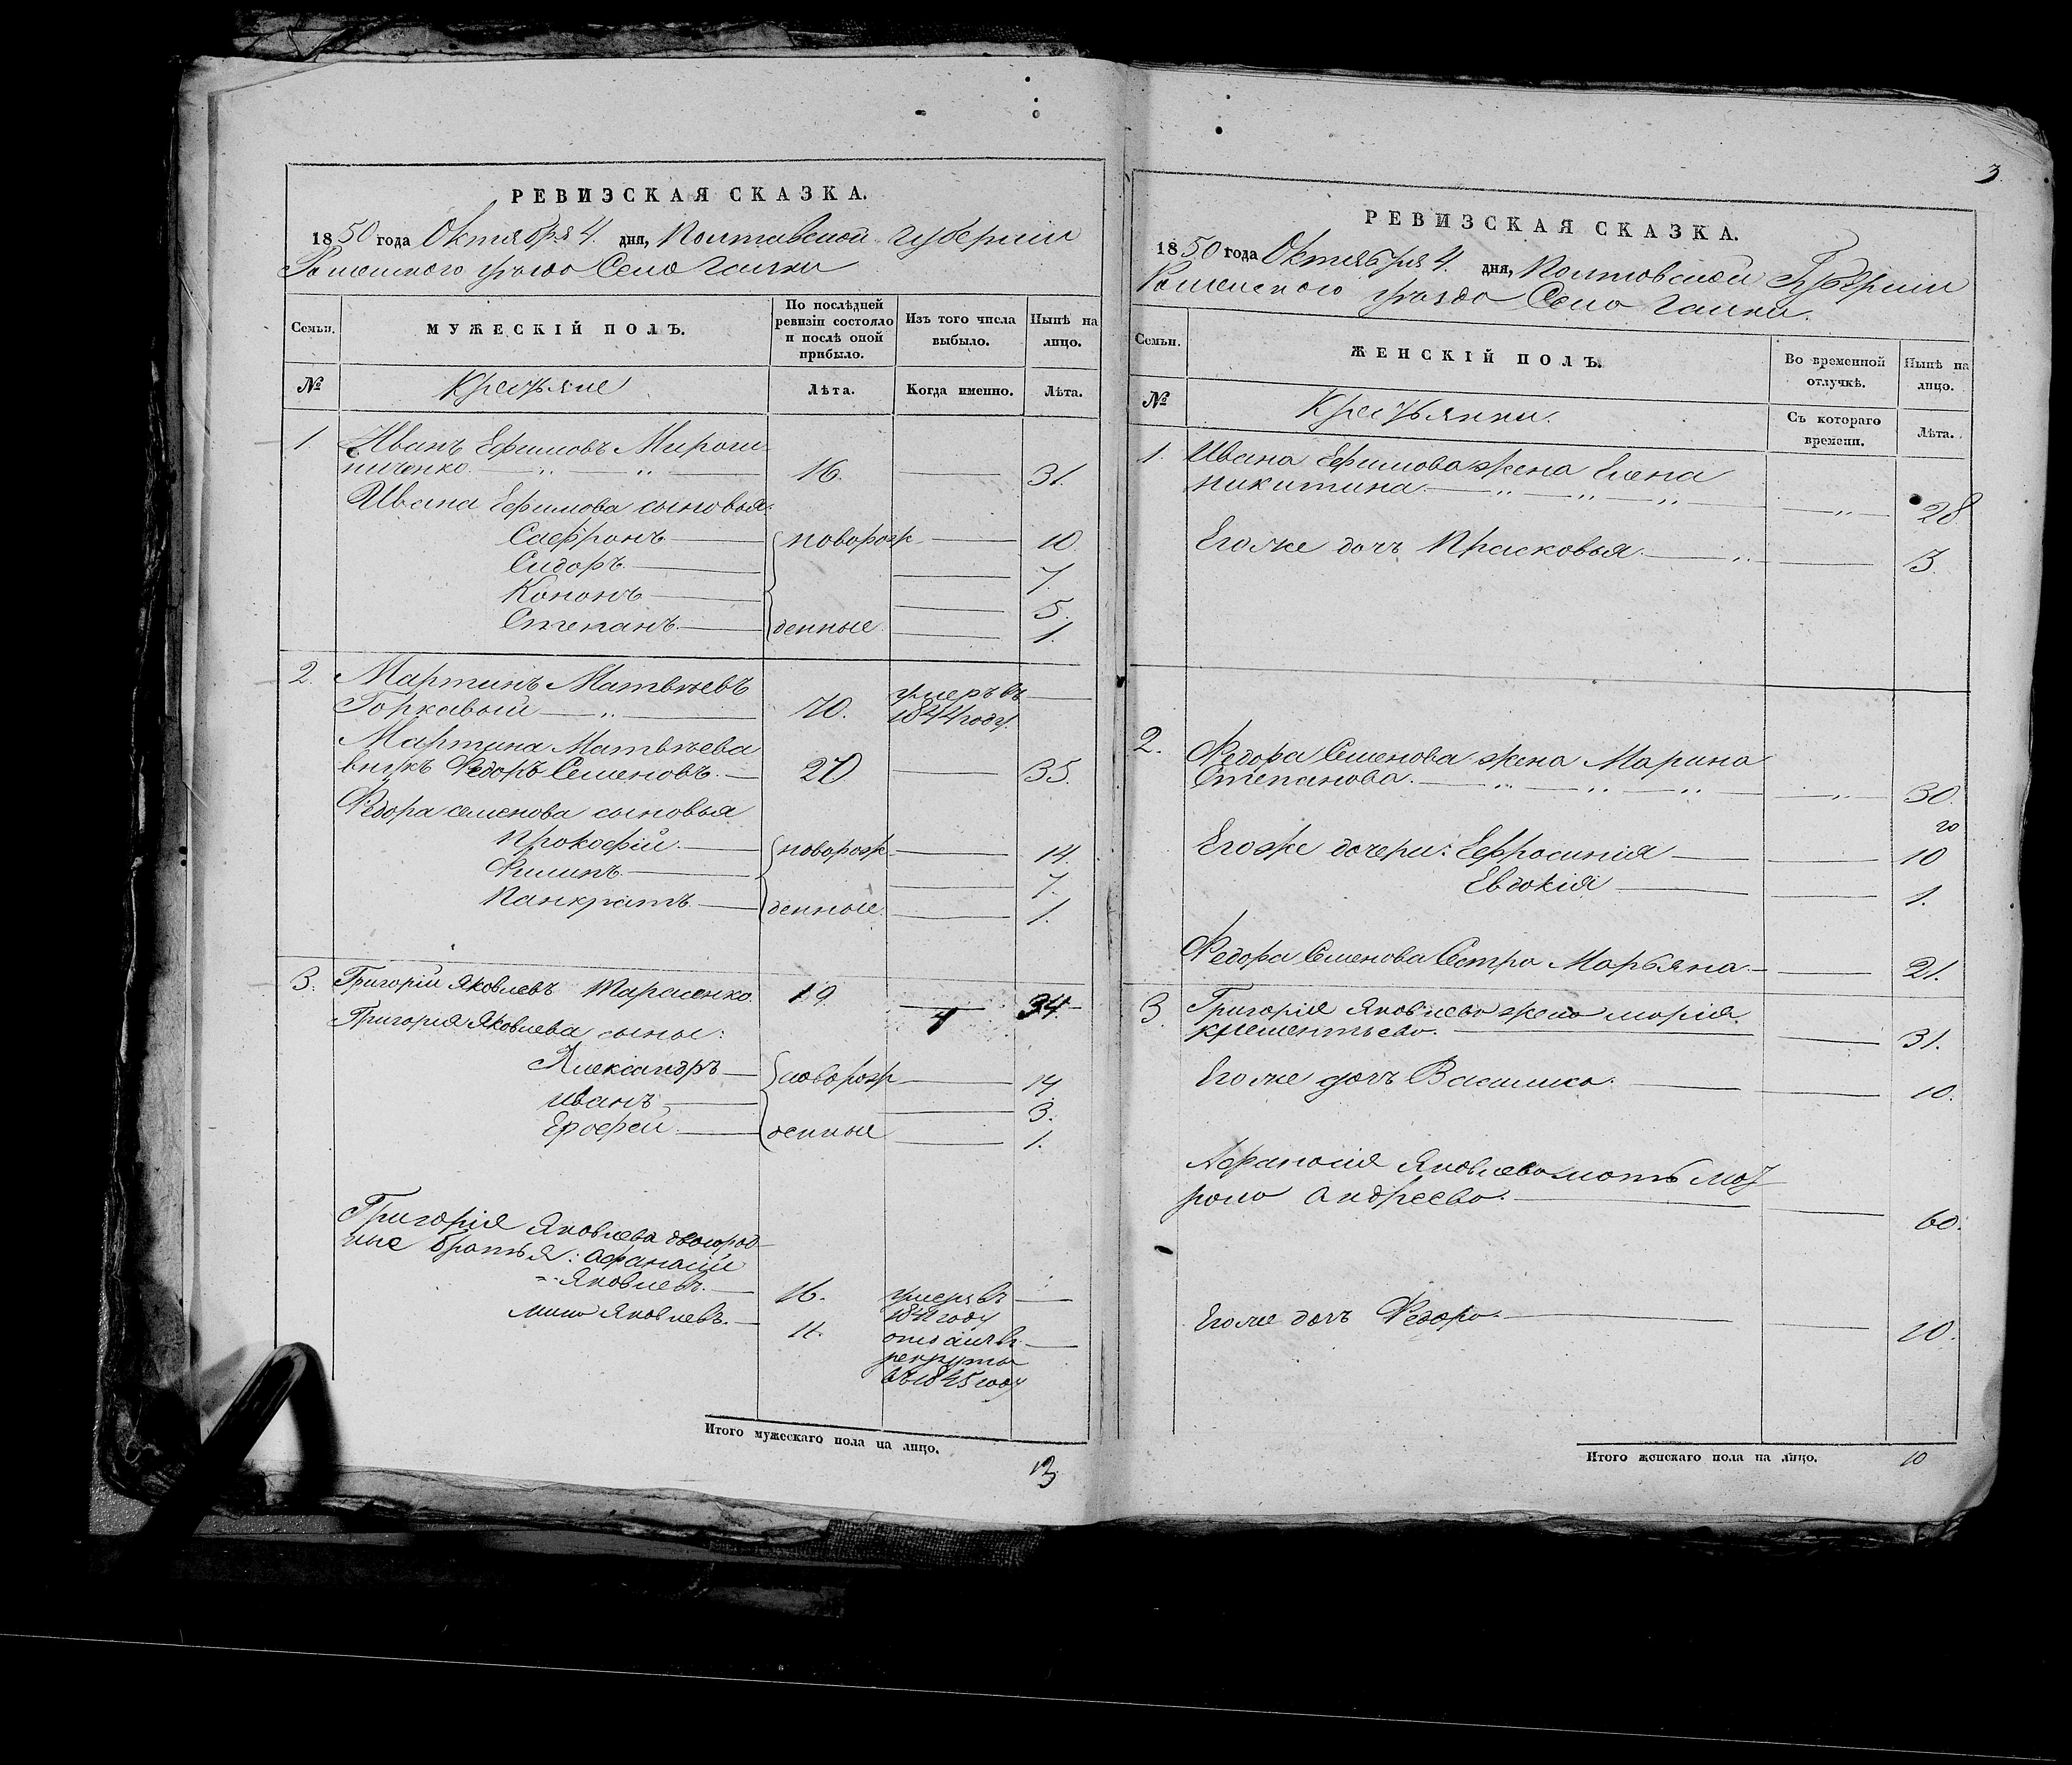 РЕВИЗСКАЯ СКАЗКА.
1850 года Октября 4. дня, Полтавской губернии
Роменского уезда Село Галки
Семьи.
МУЖЕСКІЙ ПОЛЪ.
По послѣдней
ревизіи состояло
и послѣ оной
прибыло.
Изъ того числа
выбыло.
Нынѣ на
лицо.
№
Крестьяне
Лѣта.
Когда именно.
Лѣта.
1. Иванъ Ефимовъ Мирош-
ниченко 16. 31.
Ивана Ефимова сыновья:
Сафронъ новорож 10.
Сидоръ 7.
Кононъ 5.
Степанъ денные 1.
2. Мартинъ Матвѣевъ умеръ въ
Горкавый 70. 1844 году
Мартина Матвѣева
внукъ Федоръ Семеновъ. 20 35
Федора Семенова сыновья
Прокофій новорож 14.
Филипъ 7.
Панкратъ денные 1.
3. Григорій Яковлевъ Тарасенко 19 34.
4
Григорія Яковлева сыны:
Александръ новорож 14
Иванъ 3.
Ерофей денные 1.
Григорія Яковлева двоюрод-
ные братья: Афанасій
Яковлевъ. 16. умеръ въ
1841 году
Яковлевъ. 11. отдан въ
рекруты
въ 1845 году
Итого мужескаго пола на лицо.
13
3
РЕВИЗСКАЯ СКАЗКА.
1850 года Октября 4. дня, Полтовской Губернии
Роменского уездо Село Галки.
Семьи.
ЖЕНСКІЙ ПОЛЪ.
Во временной
отлучкѣ.
Нынѣ на
лицо.
№
Крестьянки.
Съ котораго
времени.
Лѣта.
1. Ивана Ефимова жена Елена
Никитина 28
Егоже дочъ Прасковья 3.
2. Федора Семенова жена Марина
Степанова. 30.
20
Егоже дочери: Ефросинія 10
Евдокія 1.
Федора Семенова Сестра Марьяна 21.
3 Григорія Яковлево жено Марія
Клементьево. 31.
Егоже дочъ Василиса. 10.
Афанасія Яковлево мать Мот
роно Андреево. 60.
Егоже дочъ Федоро. 20.
Итого женскаго пола на лицо.
10